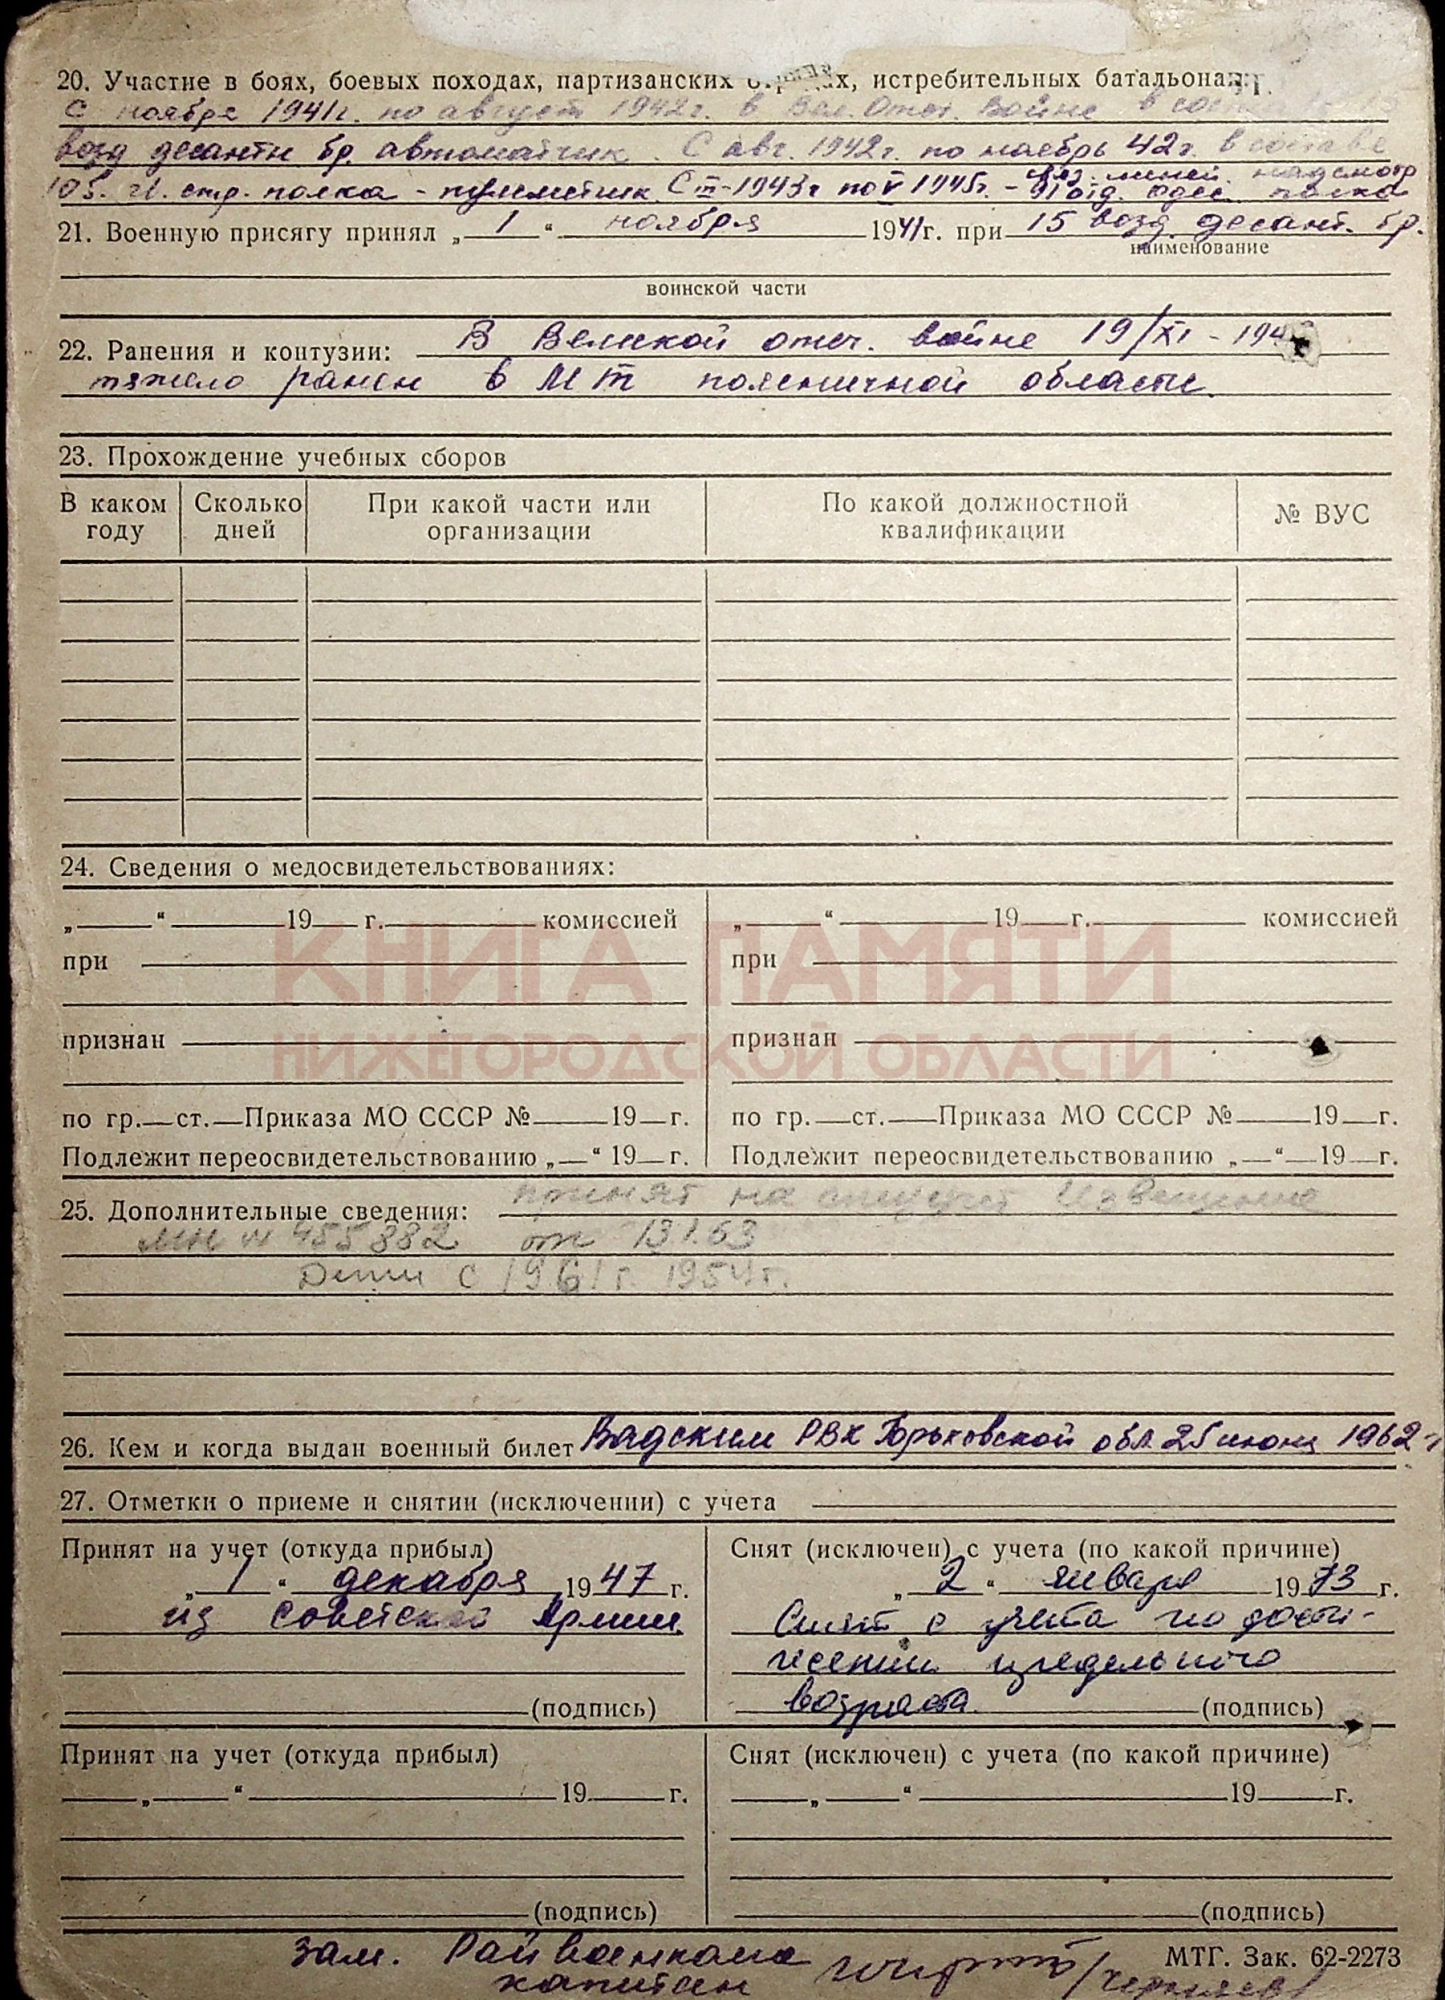 20. Участие в боях, боевых походах, партизанских отрядах, истребительных батальонах:
С ноября 1941г. по август 1942г. в Вел. Отеч. Войне в сост. 15
возд десантн бр. автоматчик. С авг. 1942г. по ноябрь 42г. в составе
105. гв. стр. полка - пулеметчик С III-1943г по V 1945г. - связ. линей. надсмотр
91 отд. Одес. полка
21. Военную присягу принял „ 1 “ ноября 1941г. при 15 возд. десант. бр.
наименование
воинской части
22. Ранения и контузии: В Великой отеч. войне 19/XI - 194
тяжело ранен в МТ поясничной области.
23. Прохождение учебных сборов
В каком году Сколько дней При какой части или организации По какой должностной квалификации № ВУС
24. Сведения о медосвидетельствованиях:
„ “ 19 г. комиссией „ “ 19 г. комиссией
при при
признан признан
КНИГА ПАМЯТИ
НИЖЕГОРОДСКОЙ ОБЛАСТИ
по гр. ст. Приказа МО СССР № 19 г. по гр. ст. Приказа МО СССР № 19 г.
Подлежит переосвидетельствованию „ “ 19 г. Подлежит переосвидетельствованию „ “ 19 г.
25. Дополнительные сведения: принят на спецучет Извещение
МН № 455882 от 13.1.63
Дети с 1961г. 1954г.
26. Кем и когда выдан военный билет Вадским РВК Горьковской обл 25 июня 1962 г
27. Отметки о приеме и снятии (исключении) с учета
Принят на учет (откуда прибыл)
„ 1 “ декабря 1947 г.
из Советской Армии.
(подпись)
Снят (исключен) с учета (по какой причине)
„ 2 “ января 1973 г.
Снят с учета по дости-
жении предельного
возраста. (подпись)
Принят на учет (откуда прибыл) Снят (исключен) с учета (по какой причине)
„ “ 19 г. „ “ 19 г.
(подпись) (подпись)
Зам. Райвоенкома
капитан
МТГ. Зак. 62-2273